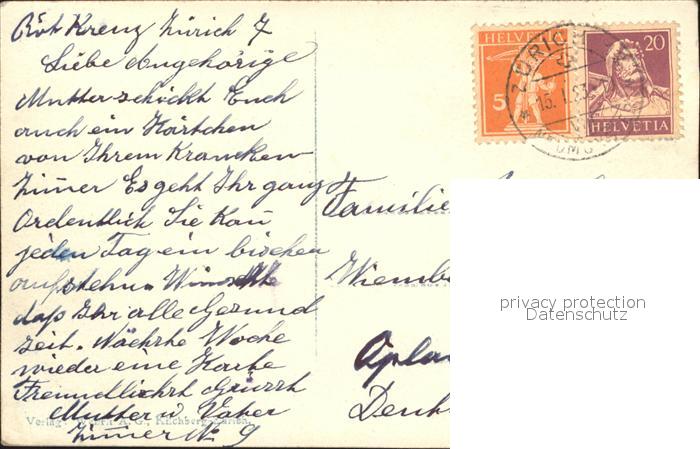 Rot Kreuz Zürich 7
Liebe Angehörige
Mutter schickt Euch
auch ein Kärtchen
von Ihrem Krancken
Zimer Es geht Ihr ganz
Ordentlich Sie Kan
jeden Tag ein bischen
aufstehn. Wünschte
daß Ihr alle Gesund
seit. Nächste Woche
wieder eine Karte
Freundlichst Grüsst
Mutter u Vater
Zimer No 9
Verlag: Wehrli A. G., Kilchberg-Zürich
HELVETIA
5
20
HELVETIA
ZÜRICH
15. I. 2
Familie
Wiemb
privacy protection
Datenschutz